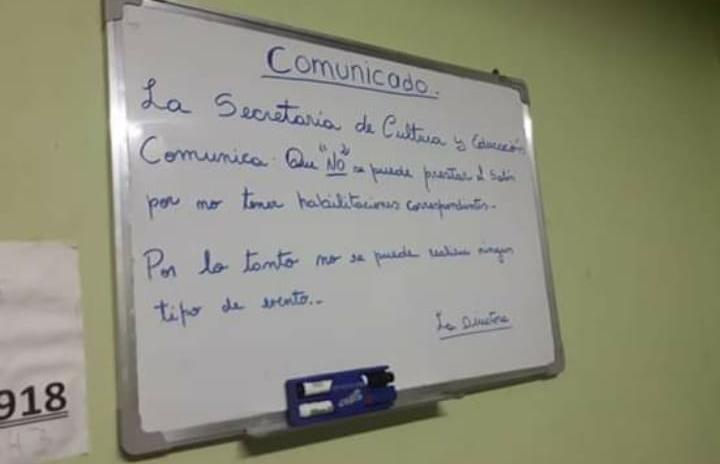 Comunicado.
La Secretaria de Cultura y Educación
Comunica Que "NO" se puede prestar el Salón
por no tener habilitaciones correspondientes.-
Por lo tanto no se puede realizar ningun
tipo de evento..
La Directora
918